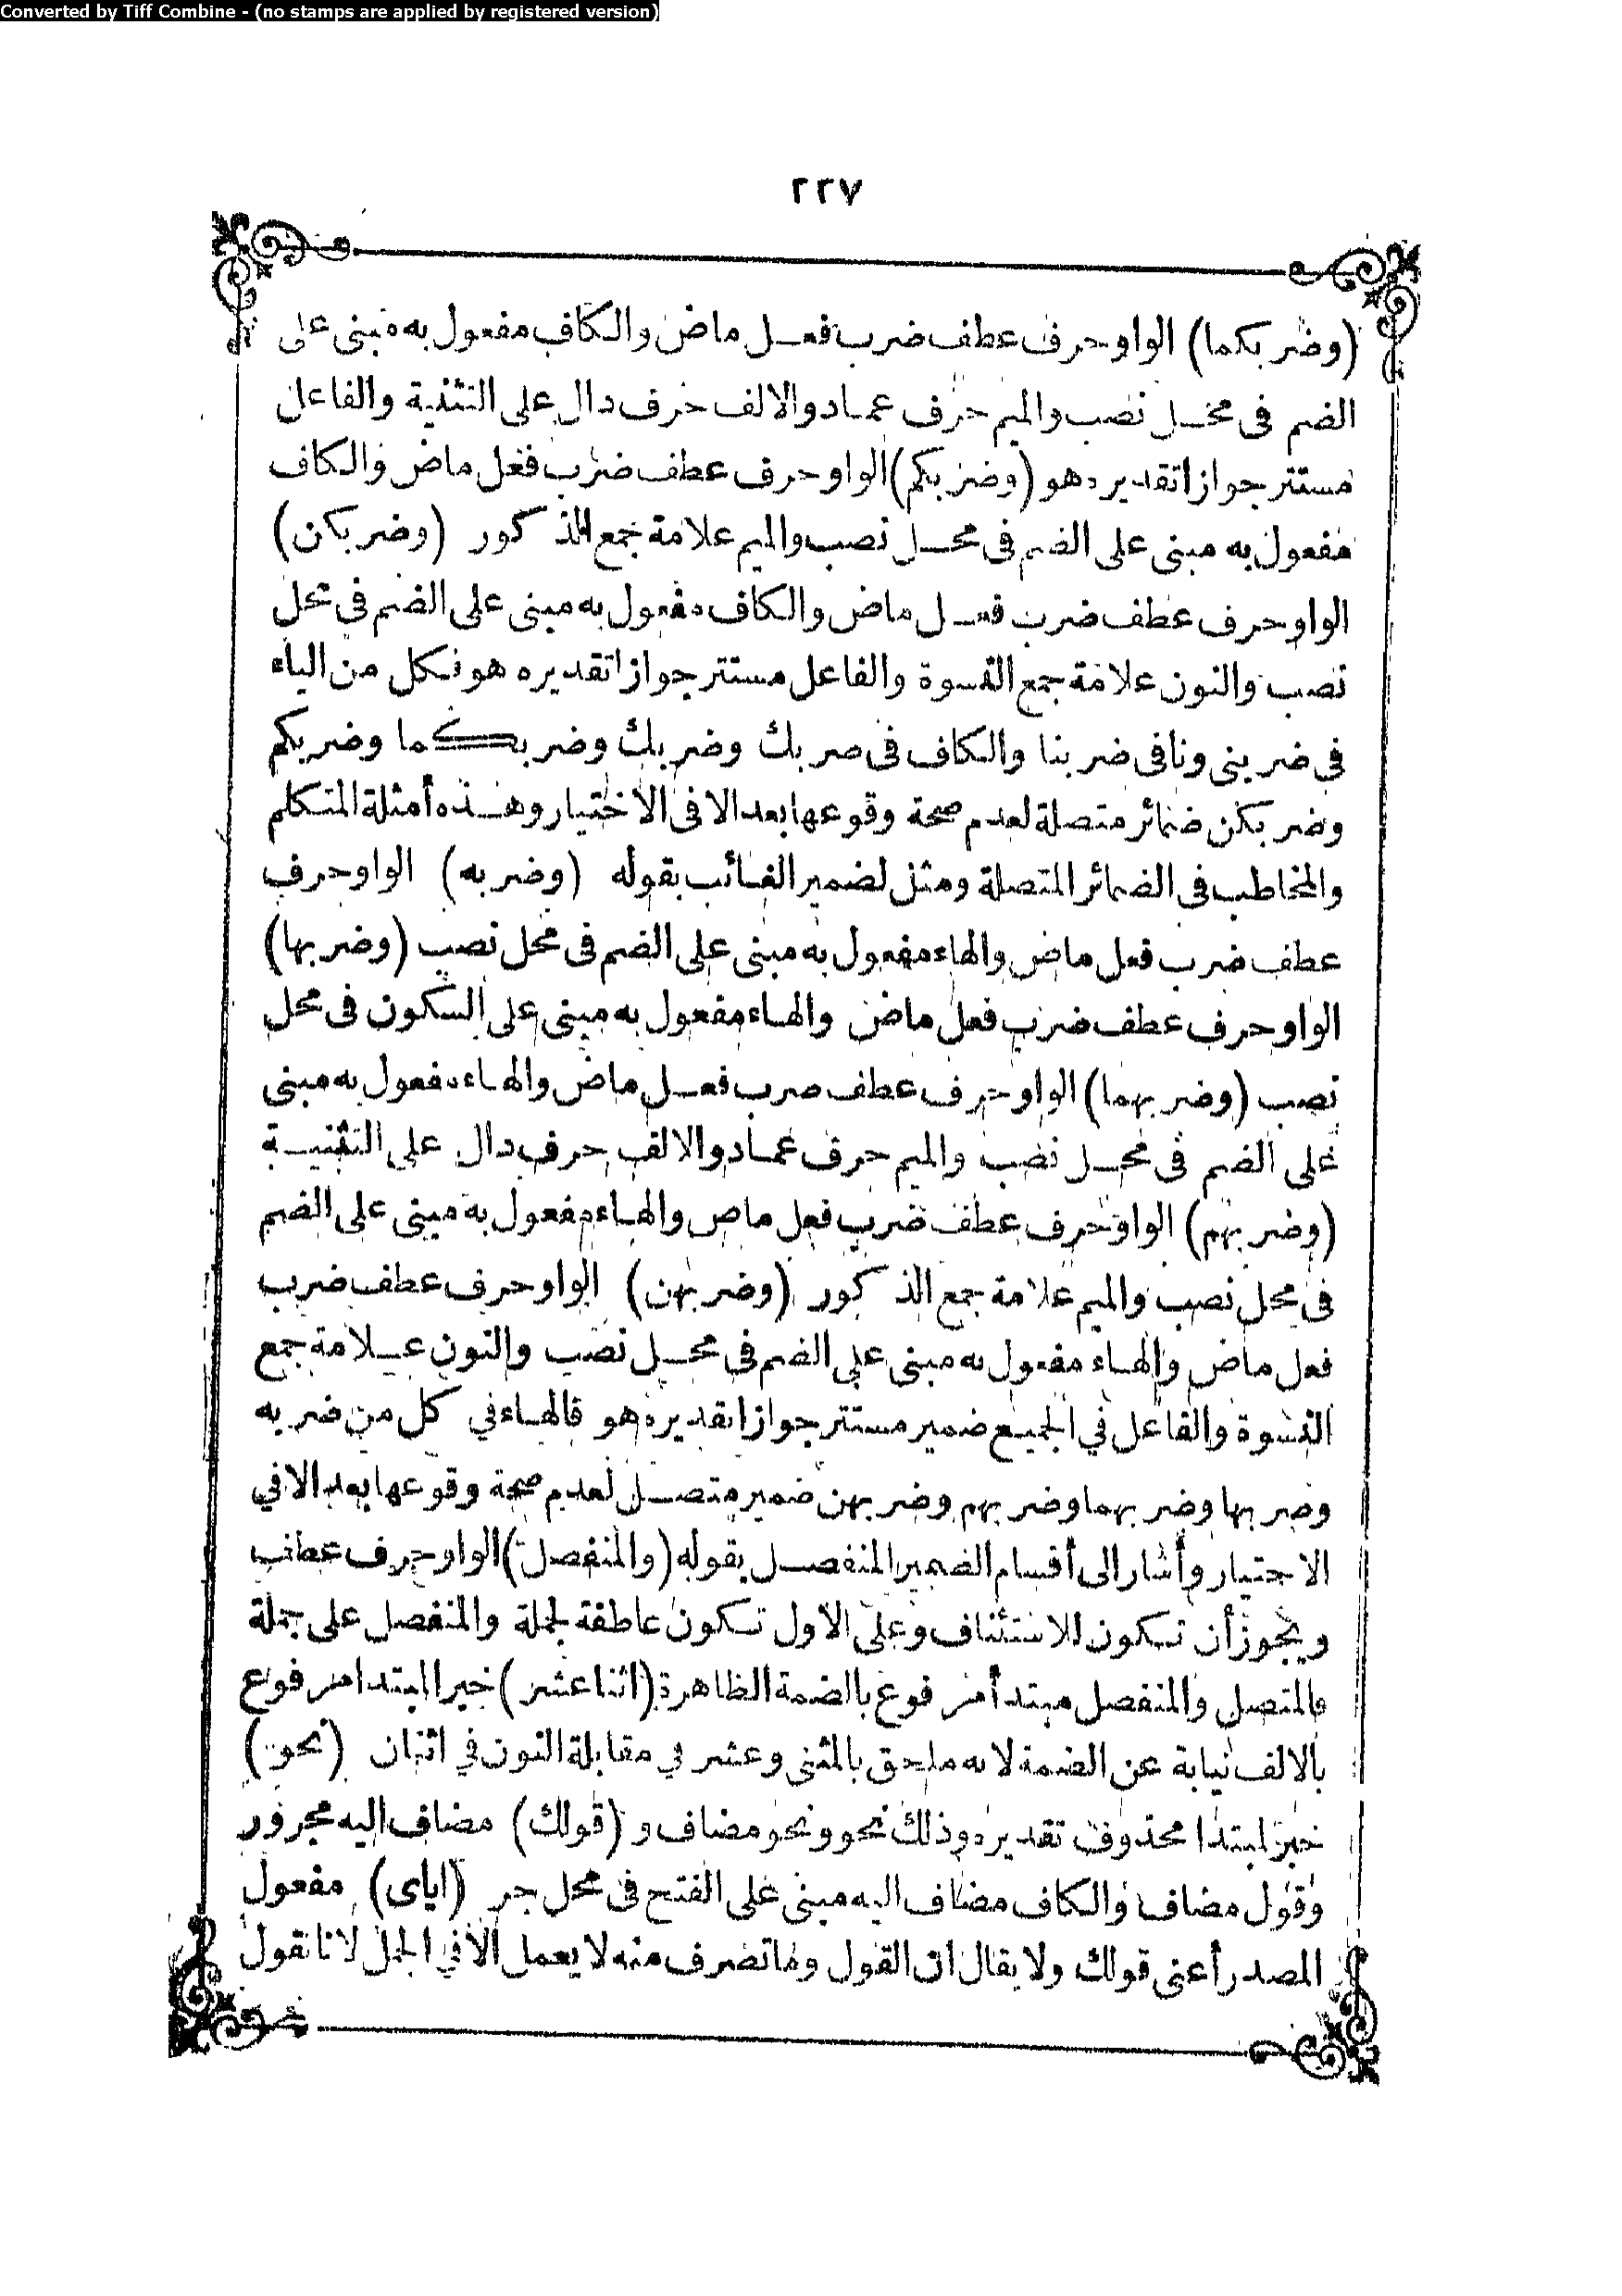 Converted by Tiff Combine - (no stamps are applied by registered version)
٢٢٧
(وضربكما) الواو حرف عطف ضرب فعل ماض والكاف مفعول به مبنى على
الضم فى محل نصب والميم حرف عماد والالف حرف دال على التثنية والفاعل
مستتر جوازا تقديره هو (وضربكم) الواو حرف عطف ضرب فعل ماض والكاف
مفعول به مبنى على الضم فى محل نصب والميم علامة جمع الذكور (وضربكن)
الواو حرف عطف ضرب فعل ماض والكاف مفعول به مبنى على الضم فى محل
نصب والنون علامة جمع النسوة والفاعل مستتر جوازا تقديره هو فكل من الياء
فى ضربنى ونا فى ضربنا والكاف فى ضربك وضربك وضربكما وضربكم
وضربكن ضمائر متصلة لعدم صحة وقوعها بعد الا فى الاختيار وهذه أمثلة المتكلم
والمخاطب فى الضمائر المتصلة ومثل لضمير الغائب بقوله (وضربه) الواو حرف
عطف ضرب فعل ماض والهاء مفعول به مبنى على الضم فى محل نصب (وضربها)
الواو حرف عطف ضرب فعل ماض والهاء مفعول به مبنى على السكون فى محل
نصب (وضربهما) الواو حرف عطف ضرب فعل ماض والهاء مفعول به مبنى
على الضم فى محل نصب والميم حرف عماد والالف حرف دال على التثنية
(وضربهم) الواو حرف عطف ضرب فعل ماض والهاء مفعول به مبنى على الضم
فى محل نصب والميم علامة جمع الذكور (وضربهن) الواو حرف عطف ضرب
فعل ماض والهاء مفعول به مبنى على الضم فى محل نصب والنون علامة جمع
النسوة والفاعل في الجميع ضمير مستتر جوازا تقديره هو فالهاء في كل من ضربه
وضربها وضربهما وضربهم وضربهن ضمير متصل لعدم صحة وقوعها بعد الا في
الاختيار وأشار الى أقسام الضمير المنفصل بقوله (والمنفصل) الواو حرف عطف
ويجوز أن تكون للاستئناف وعلى الاول تكون عاطفة لجملة والمنفصل على جملة
فالمتصل والمنفصل مبتدأ مرفوع بالضمة الظاهرة (اثنا عشر) خبر المبتدا مرفوع
بالالف نيابة عن الضمة لانه ملحق بالمثنى وعشر في مقابلة النون في اثنان (نحو)
خبر لمبتدا محذوف تقديره وذلك نحو ونحو مضاف و (قولك) مضاف اليه مجرور
وقول مضاف والكاف مضاف اليه مبنى على الفتح فى محل جر (اياى) مفعول
المصدر أعنى قولك ولا يقال ان القول وما تصرف منه لا يعمل الا في الجمل لانا نقول